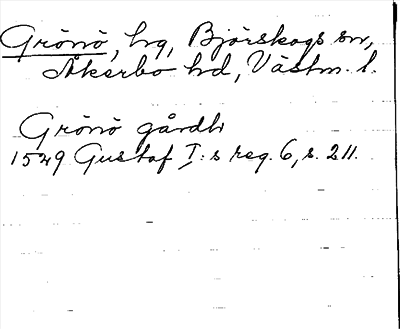 Grönö, hg, Björskogs sn,
Åkerbo hd, Västm. l.
Grönö gårdh
1549 Gustaf I:s reg. 6, s. 211.